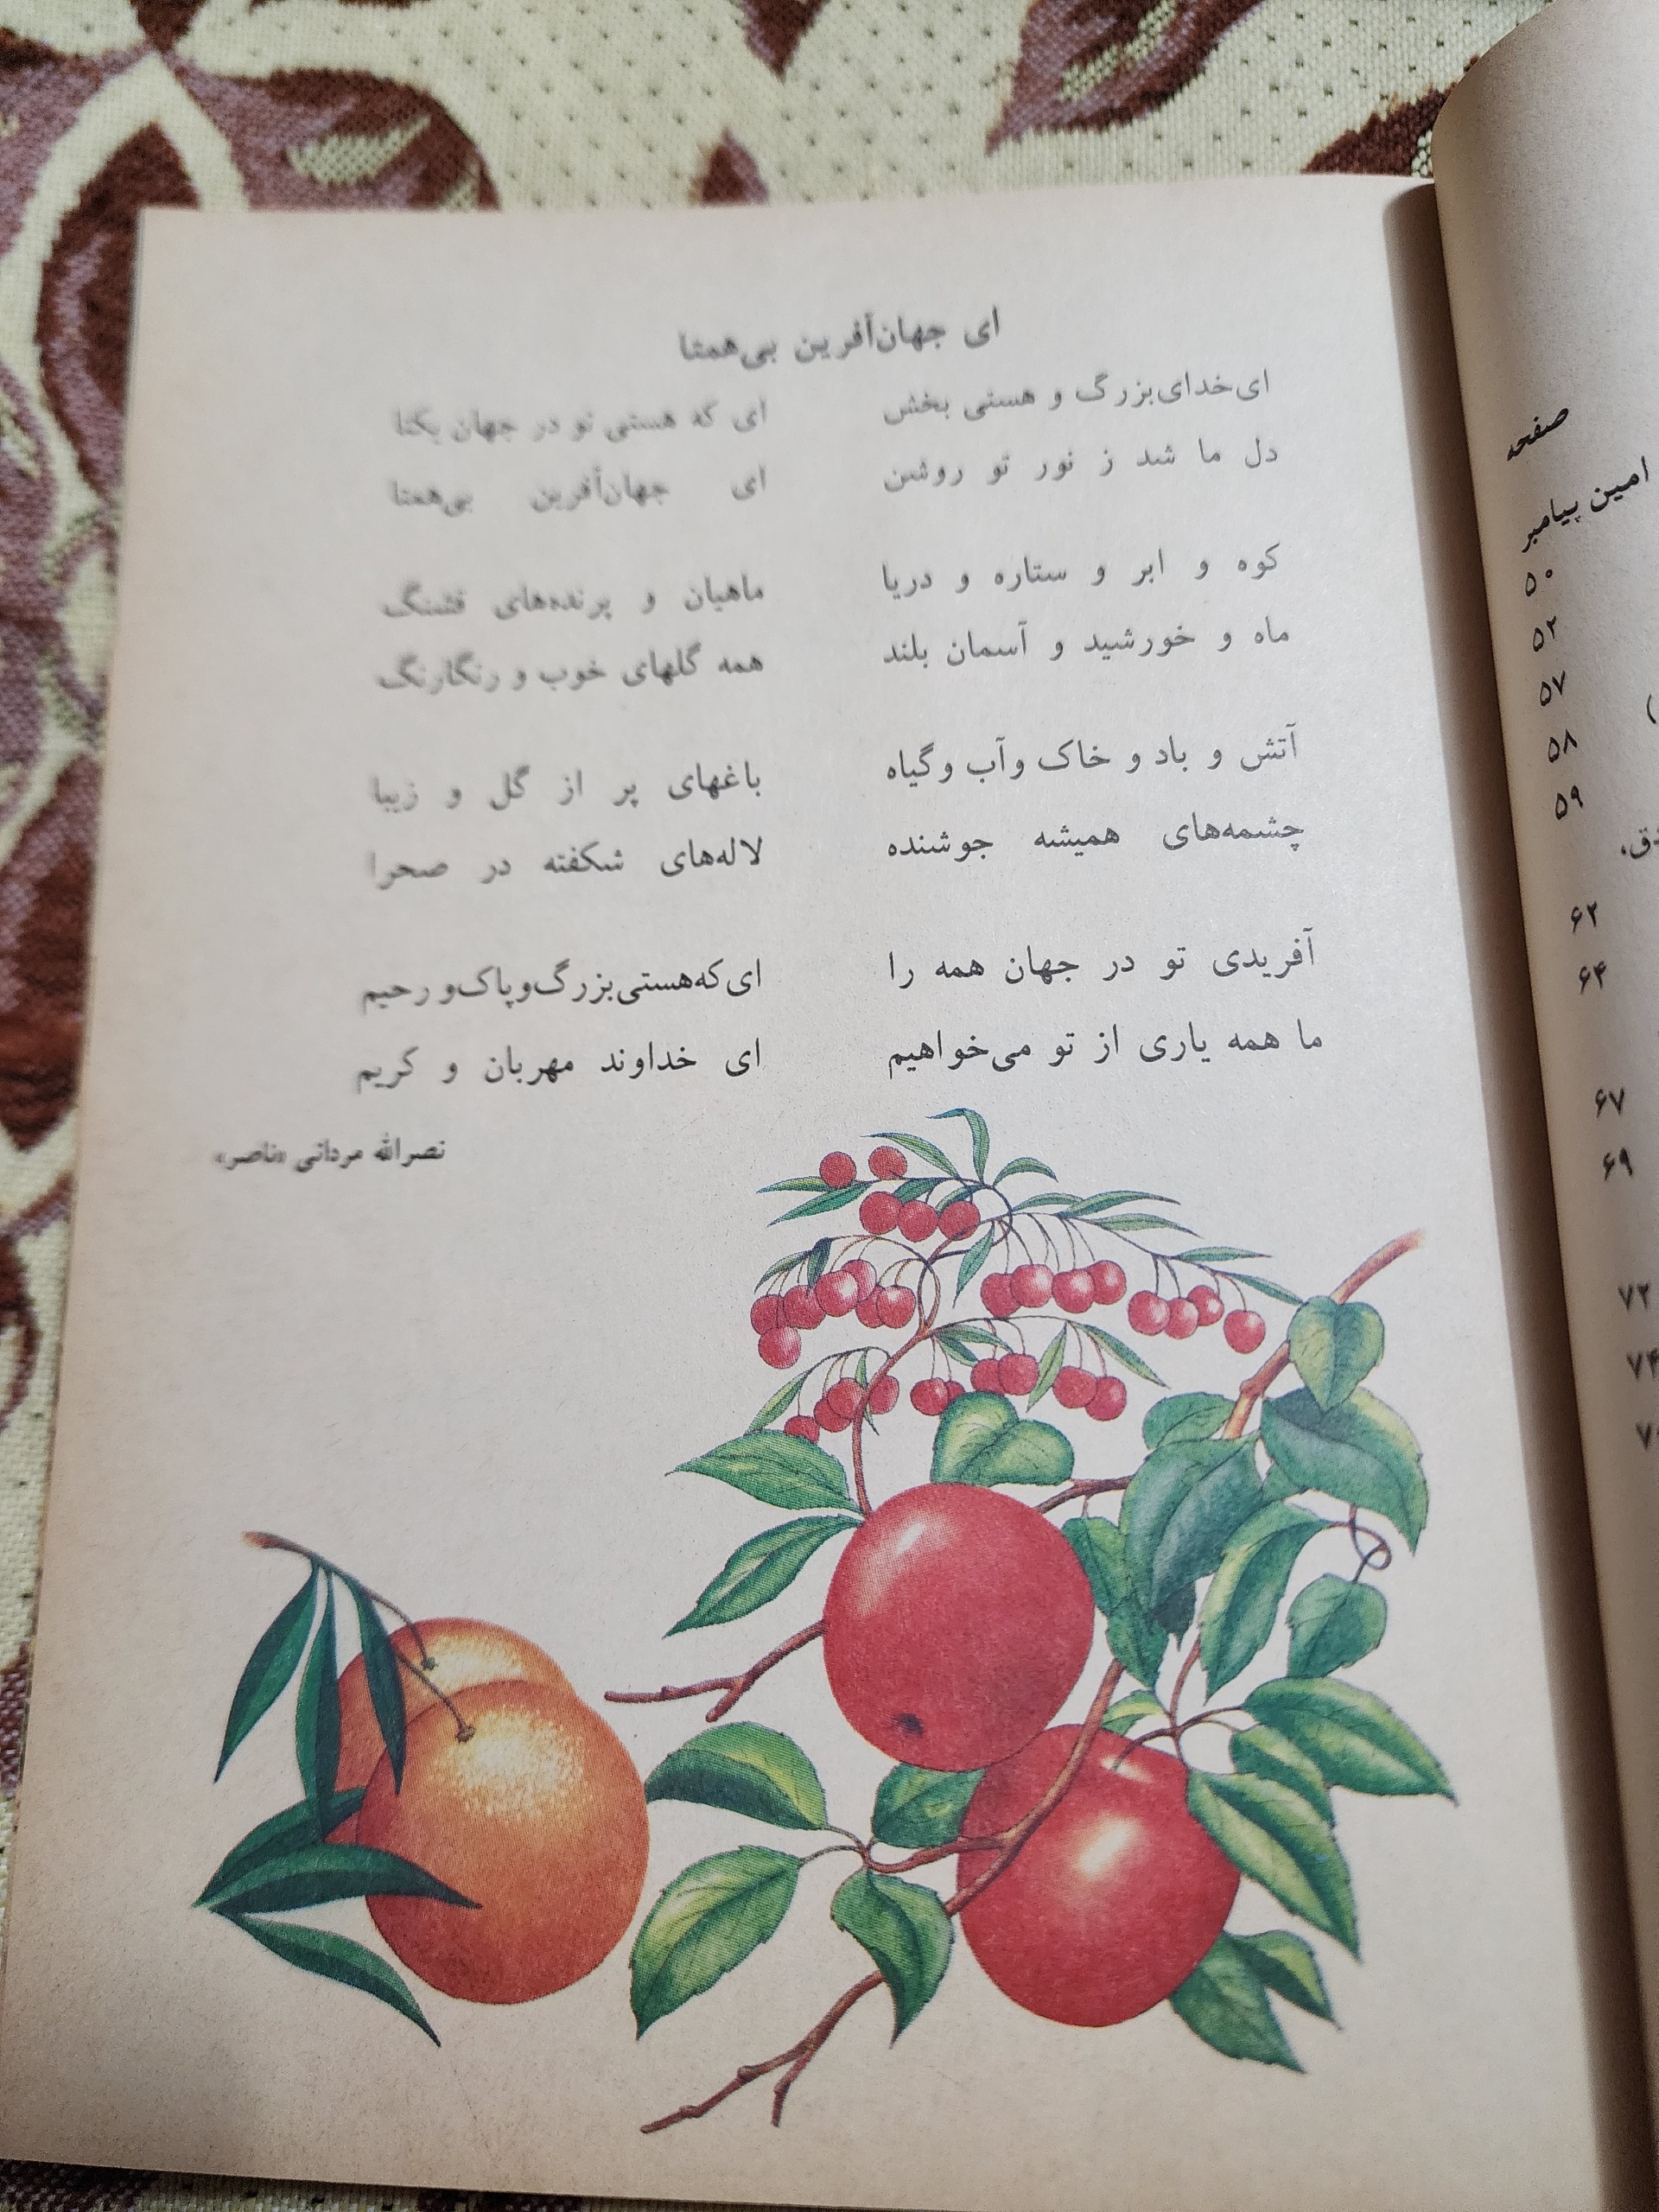 ای جهان‌آفرین بی‌همتا
ای خدای بزرگ و هستی بخش ای که هستی تو در جهان یکتا
دل ما شد ز نور تو روشن ای جهان‌آفرین بی‌همتا
کوه و ابر و ستاره و دریا ماهیان و پرنده‌های قشنگ
ماه و خورشید و آسمان بلند همه گلهای خوب و رنگارنگ
آتش و باد و خاک و آب و گیاه باغهای پر از گل و زیبا
چشمه‌های همیشه جوشنده لاله‌های شکفته در صحرا
آفریدی تو در جهان همه را ای که هستی بزرگ و پاک و رحیم
ما همه یاری از تو می‌خواهیم ای خداوند مهربان و کریم
نصرالله مردانی «ناصر»
صفحه
امین پیامبر
۵۰
۵۲
۵۷
۵۸
۵۹
۶۲
۶۴
۶۷
۶۹
۷۲
۷۴